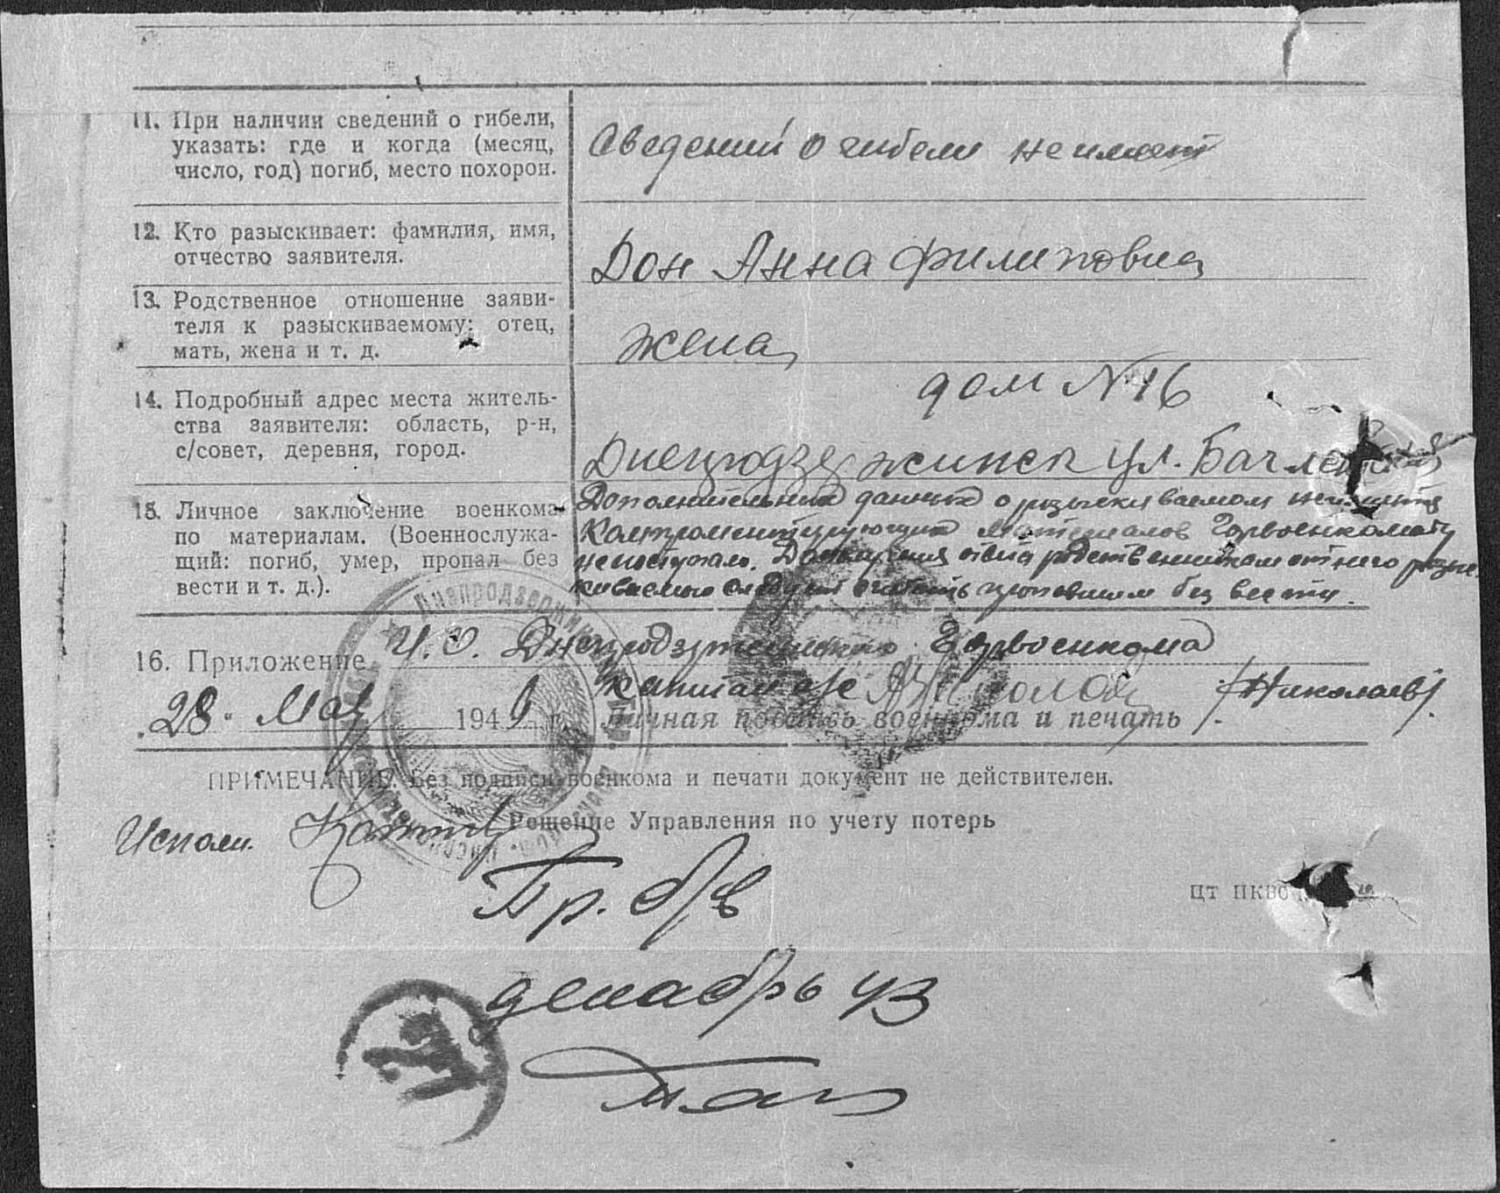 11. При наличии сведений о гибели,
указать: где и когда (месяц,
число, год) погиб, место похорон.
Сведений о гибели не имеет
12. Кто разыскивает: фамилия, имя,
отчество заявителя.
Дон Анна Филиповна
13. Родственное отношение заяви-
теля к разыскиваемому: отец,
мать, жена и т. д.
жена
14. Подробный адрес места житель-
ства заявителя: область, р-н,
с/совет, деревня, город.
дом № 16
Днепродзержинск ул.
15. Личное заключение военкома
по материалам. (Военнослужа-
щий: погиб, умер, пропал без
вести и т. д.).
Дополнительных данных о разыскиваемом не имеется
Компрометирующих материалов Горвоенкомату
не поступало. родственникам от него разыс-
киваемого следует считать пропавшим без вести.
16. Приложение
И.О. Днепродзержинского Горвоенкома
капитан а/с /Николаев/.
28. Мая 194 г. Личная подпись военкома и печать
ПРИМЕЧАНИЕ. Без подписи военкома и печати документ не действителен.
Исполн.
Решение Управления по учету потерь
Пр. б/в
ЦТ ПКВО
декабрь 43